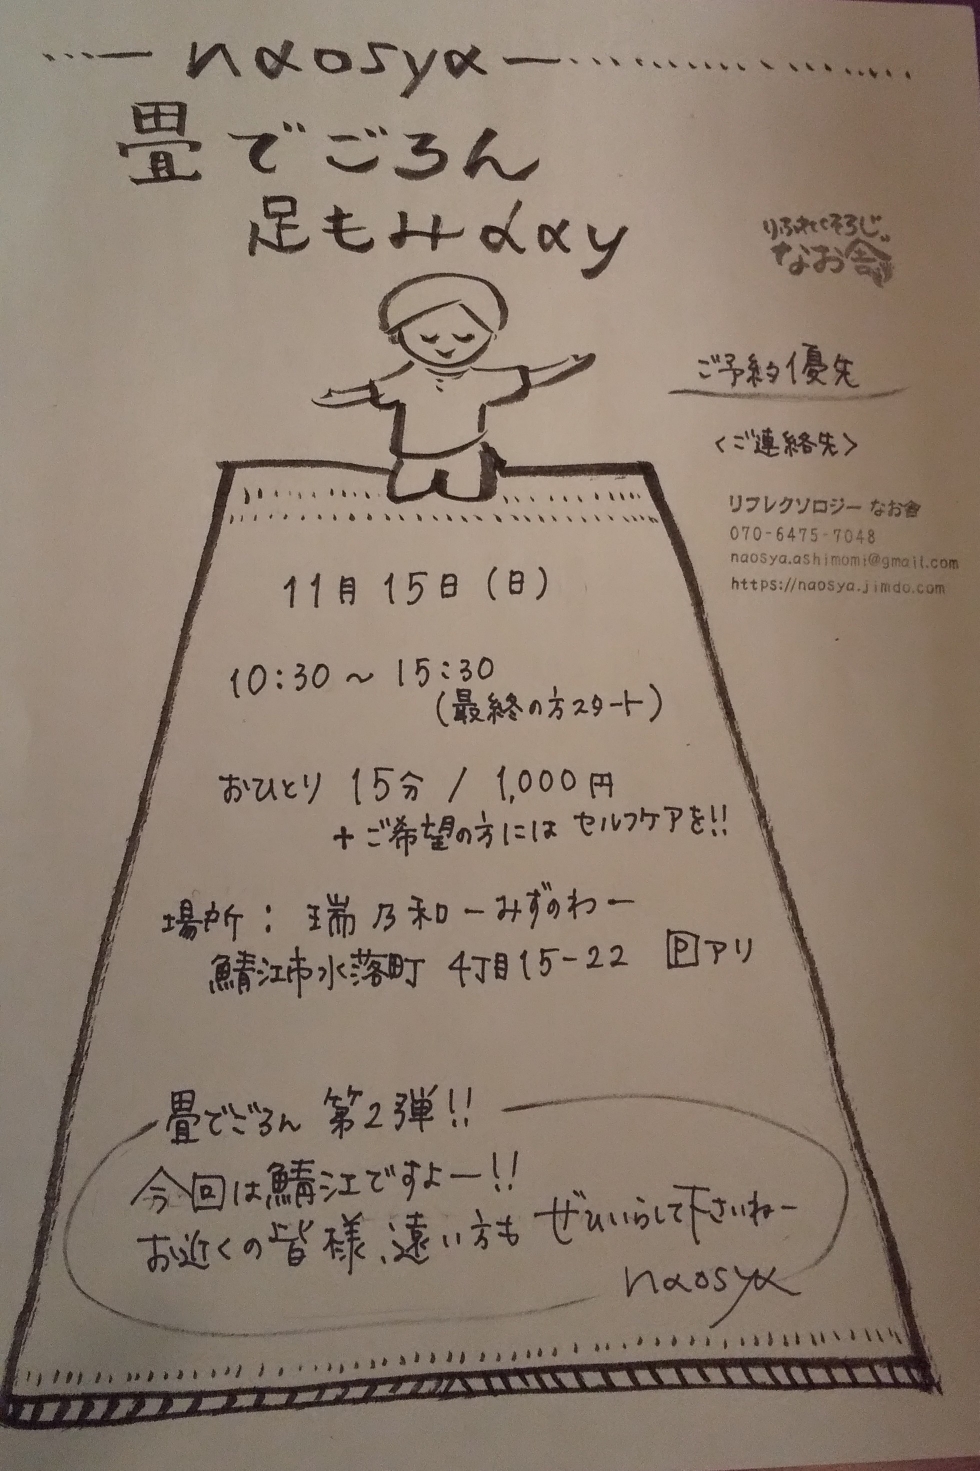 naosya
畳でごろん
足もみday
りふれくそろじー
なお舎
ご予約優先
〈ご連絡先〉
リフレクソロジー なお舎
070-6475-7048
naosya.ashimomi@gmail.com
https://naosya.jimdo.com
11月15日(日)
10:30～15:30
(最終の方スタート)
おひとり 15分 / 1,000円
+ご希望の方には セルフケアを!!
場所: 瑞乃和ーみずのわー
鯖江市水落町 4丁目15-22 Pアリ
畳でごろん 第2弾!!
今回は鯖江ですよー!!
お近くの皆様、遠い方も ぜひいらして下さいねー
naosya